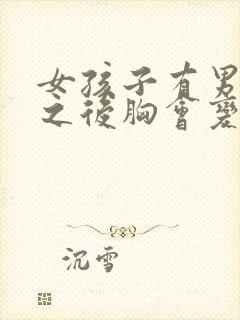 女孩子有男
之後胸會變
沉雪